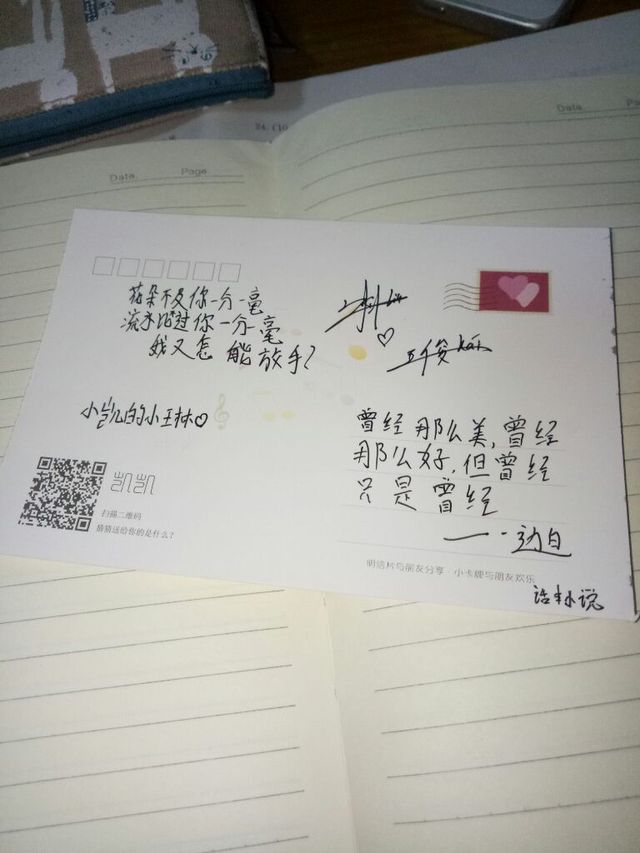 Data.
Page
24. (10
Data.
Page
花朵不及你一分一毫
流水比过你一分一毫
我又怎能放手?
小凯的小王林♡
凯凯
扫描二维码
猜猜送给你的是什么?
曾经那么美,曾经
那么好,但曾经
只是曾经
——边白
明信片与朋友分享·小卡牌与朋友欢乐